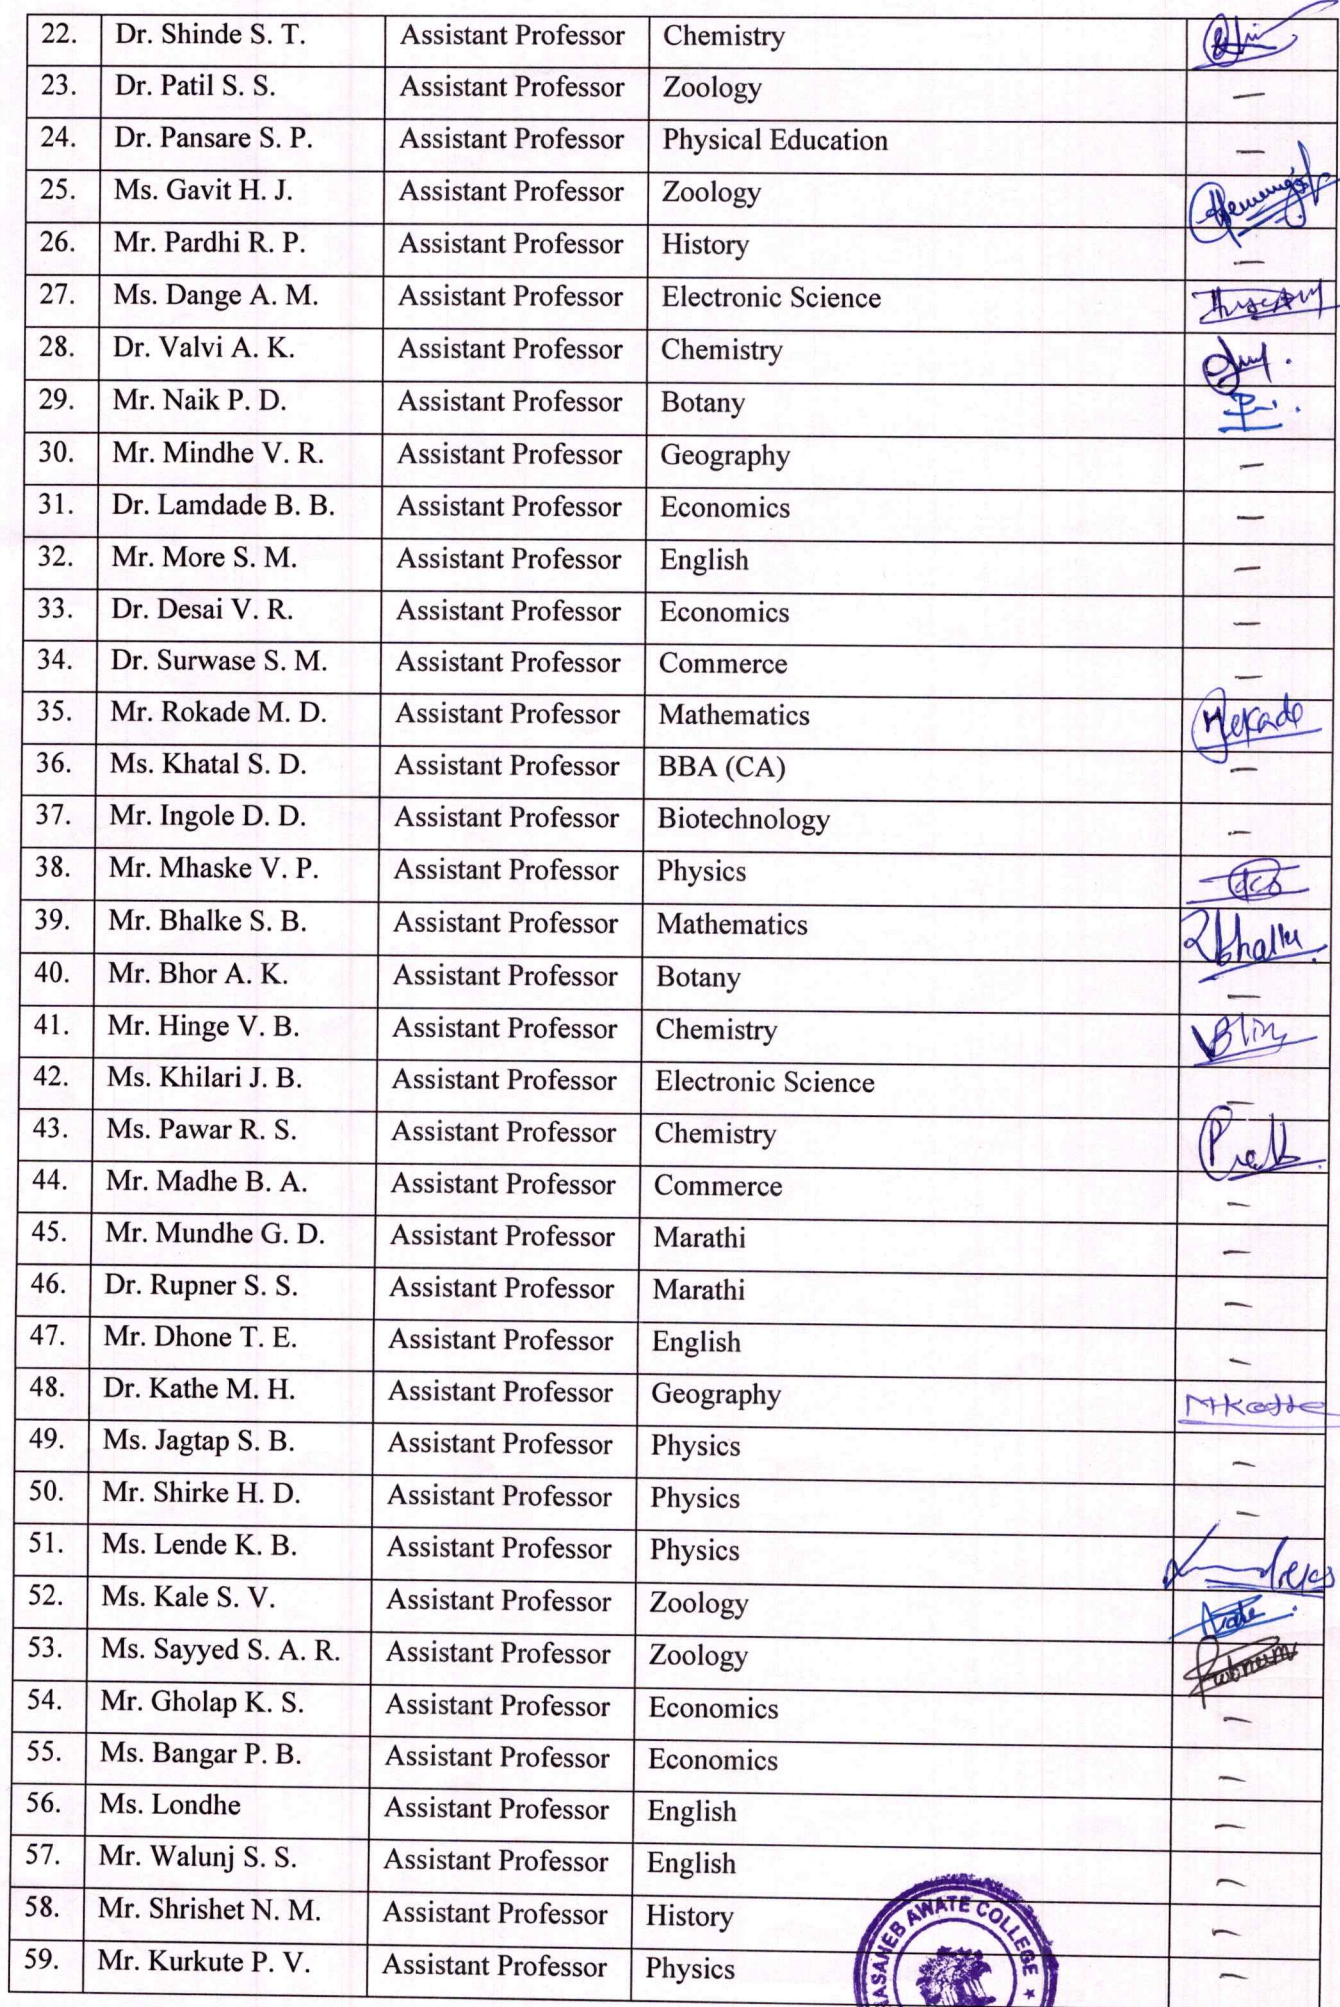 22. Dr. Shinde S. T. Assistant Professor Chemistry
23. Dr. Patil S. S. Assistant Professor Zoology —
24. Dr. Pansare S. P. Assistant Professor Physical Education —
25. Ms. Gavit H. J. Assistant Professor Zoology
26. Mr. Pardhi R. P. Assistant Professor History —
27. Ms. Dange A. M. Assistant Professor Electronic Science
28. Dr. Valvi A. K. Assistant Professor Chemistry
29. Mr. Naik P. D. Assistant Professor Botany
30. Mr. Mindhe V. R. Assistant Professor Geography —
31. Dr. Lamdade B. B. Assistant Professor Economics —
32. Mr. More S. M. Assistant Professor English —
33. Dr. Desai V. R. Assistant Professor Economics —
34. Dr. Surwase S. M. Assistant Professor Commerce —
35. Mr. Rokade M. D. Assistant Professor Mathematics
36. Ms. Khatal S. D. Assistant Professor BBA (CA) —
37. Mr. Ingole D. D. Assistant Professor Biotechnology —
38. Mr. Mhaske V. P. Assistant Professor Physics
39. Mr. Bhalke S. B. Assistant Professor Mathematics
40. Mr. Bhor A. K. Assistant Professor Botany —
41. Mr. Hinge V. B. Assistant Professor Chemistry
42. Ms. Khilari J. B. Assistant Professor Electronic Science —
43. Ms. Pawar R. S. Assistant Professor Chemistry
44. Mr. Madhe B. A. Assistant Professor Commerce —
45. Mr. Mundhe G. D. Assistant Professor Marathi —
46. Dr. Rupner S. S. Assistant Professor Marathi —
47. Mr. Dhone T. E. Assistant Professor English —
48. Dr. Kathe M. H. Assistant Professor Geography
49. Ms. Jagtap S. B. Assistant Professor Physics —
50. Mr. Shirke H. D. Assistant Professor Physics —
51. Ms. Lende K. B. Assistant Professor Physics
52. Ms. Kale S. V. Assistant Professor Zoology
53. Ms. Sayyed S. A. R. Assistant Professor Zoology
54. Mr. Gholap K. S. Assistant Professor Economics —
55. Ms. Bangar P. B. Assistant Professor Economics —
56. Ms. Londhe Assistant Professor English —
57. Mr. Walunj S. S. Assistant Professor English —
58. Mr. Shrishet N. M. Assistant Professor History —
59. Mr. Kurkute P. V. Assistant Professor Physics —
ASAHEB AWATE COLLEGE ★